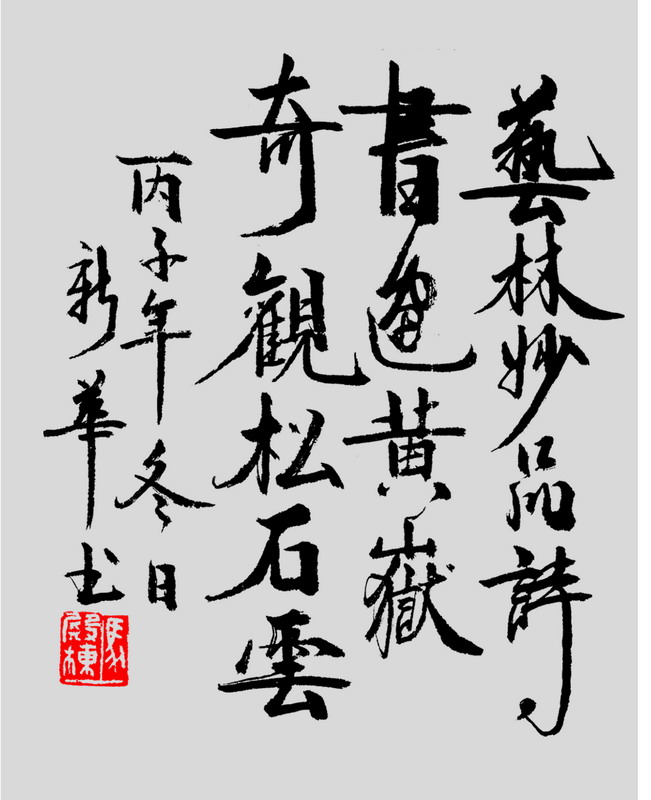 藝林妙品詩
書畫黃嶽
奇觀松石雲
丙子年冬日
新華书